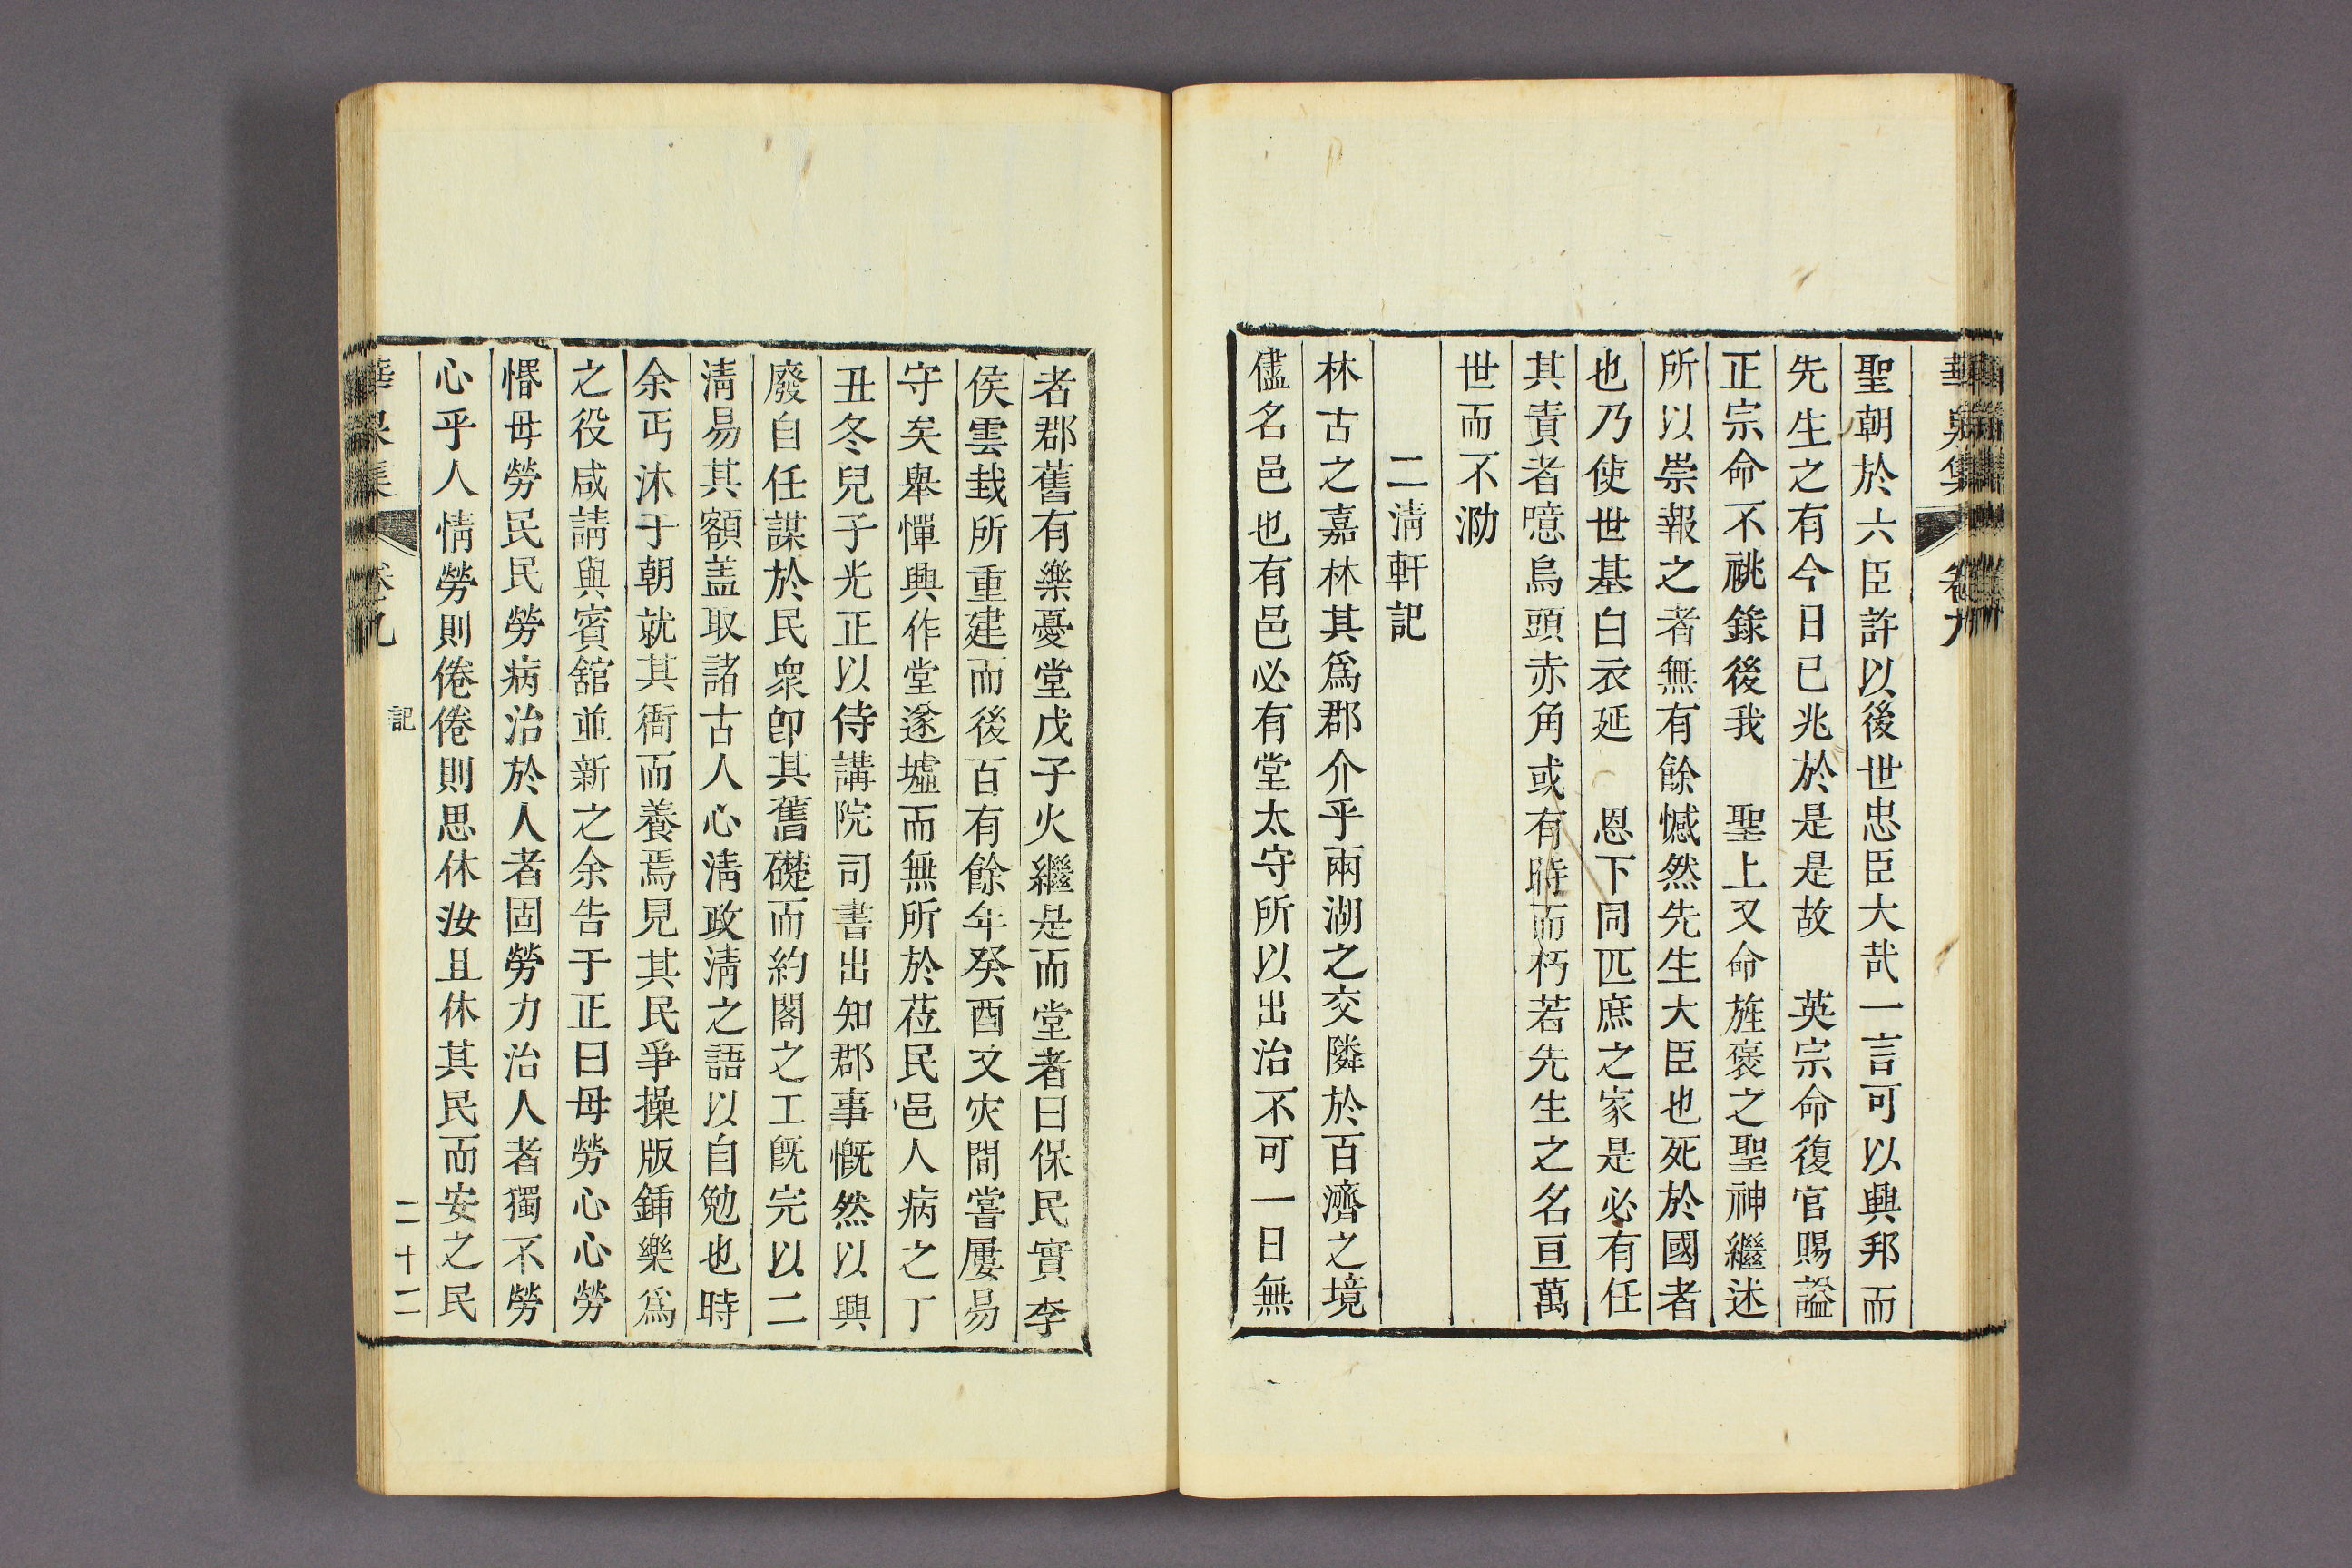 華泉集 卷九
聖朝於六臣許以後世忠臣大哉一言可以興邦而
先生之有今日已兆於是是故　英宗命復官賜謚
正宗命不祧錄後我　聖上又命旌褒之聖神繼述
所以崇報之者無有餘憾然先生大臣也死於國者
也乃使世基白衣延　恩下同匹庶之家是必有任
其責者噫烏頭赤角或有時而朽若先生之名亘萬
世而不泐
二淸軒記
林古之嘉林其爲郡介乎兩湖之交隣於百濟之境
儘名邑也有邑必有堂太守所以出治不可一日無
者郡舊有樂憂堂戊子火繼是而堂者曰保民實李
侯雲栽所重建而後百有餘年癸酉又灾間嘗屢易
守矣舉憚興作堂遂墟而無所於莅民邑人病之丁
丑冬兒子光正以侍講院司書出知郡事慨然以興
廢自任謀於民衆卽其舊礎而約閣之工旣完以二
淸易其額盖取諸古人心淸政淸之語以自勉也時
余丐沐于朝就其衙而養焉見其民爭操版鍤樂爲
之役咸請與賓舘並新之余告于正曰毋勞心心勞
惽毋勞民民勞病治於人者固勞力治人者獨不勞
心乎人情勞則倦倦則思休汝且休其民而安之民
華泉集 卷九 記 二十二